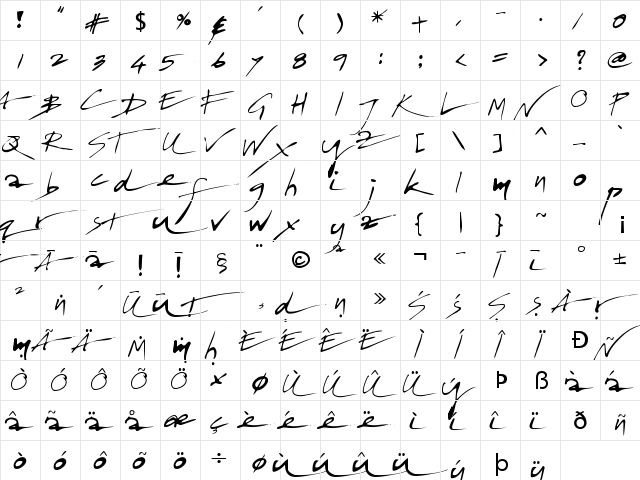 ! " # $ % & ' ( ) * + , - . / 0
1 2 3 4 5 6 7 8 9 : ; < = > ? @
A B C D E F G H I J K L M N O P
Q R S T U V W X Y Z [ \ ] ^ _ `
a b c d e f g h i j k l m n o p
q r s t u v w x y z { | } ~ ¡
Ā ā ! Ī § ¨ © « ¬ ¯ Ī ī ° ±
² ṅ ´ Ū ū Ṭ ¸ ḍ ṇ » Ś ś Ṣ ṣ À ṛ
ṃ Ã Ä Ṁ ṁ ḥ È É Ê Ë Ì Í Î Ï Ð Ñ
Ò Ó Ô Õ Ö × ø Ù Ú Û Ü ý Þ ß à á
â ã ä å æ ç è é ê ë ì í î ï ð ñ
ò ó ô õ ö ÷ ø ù ú û ü ý þ ÿ